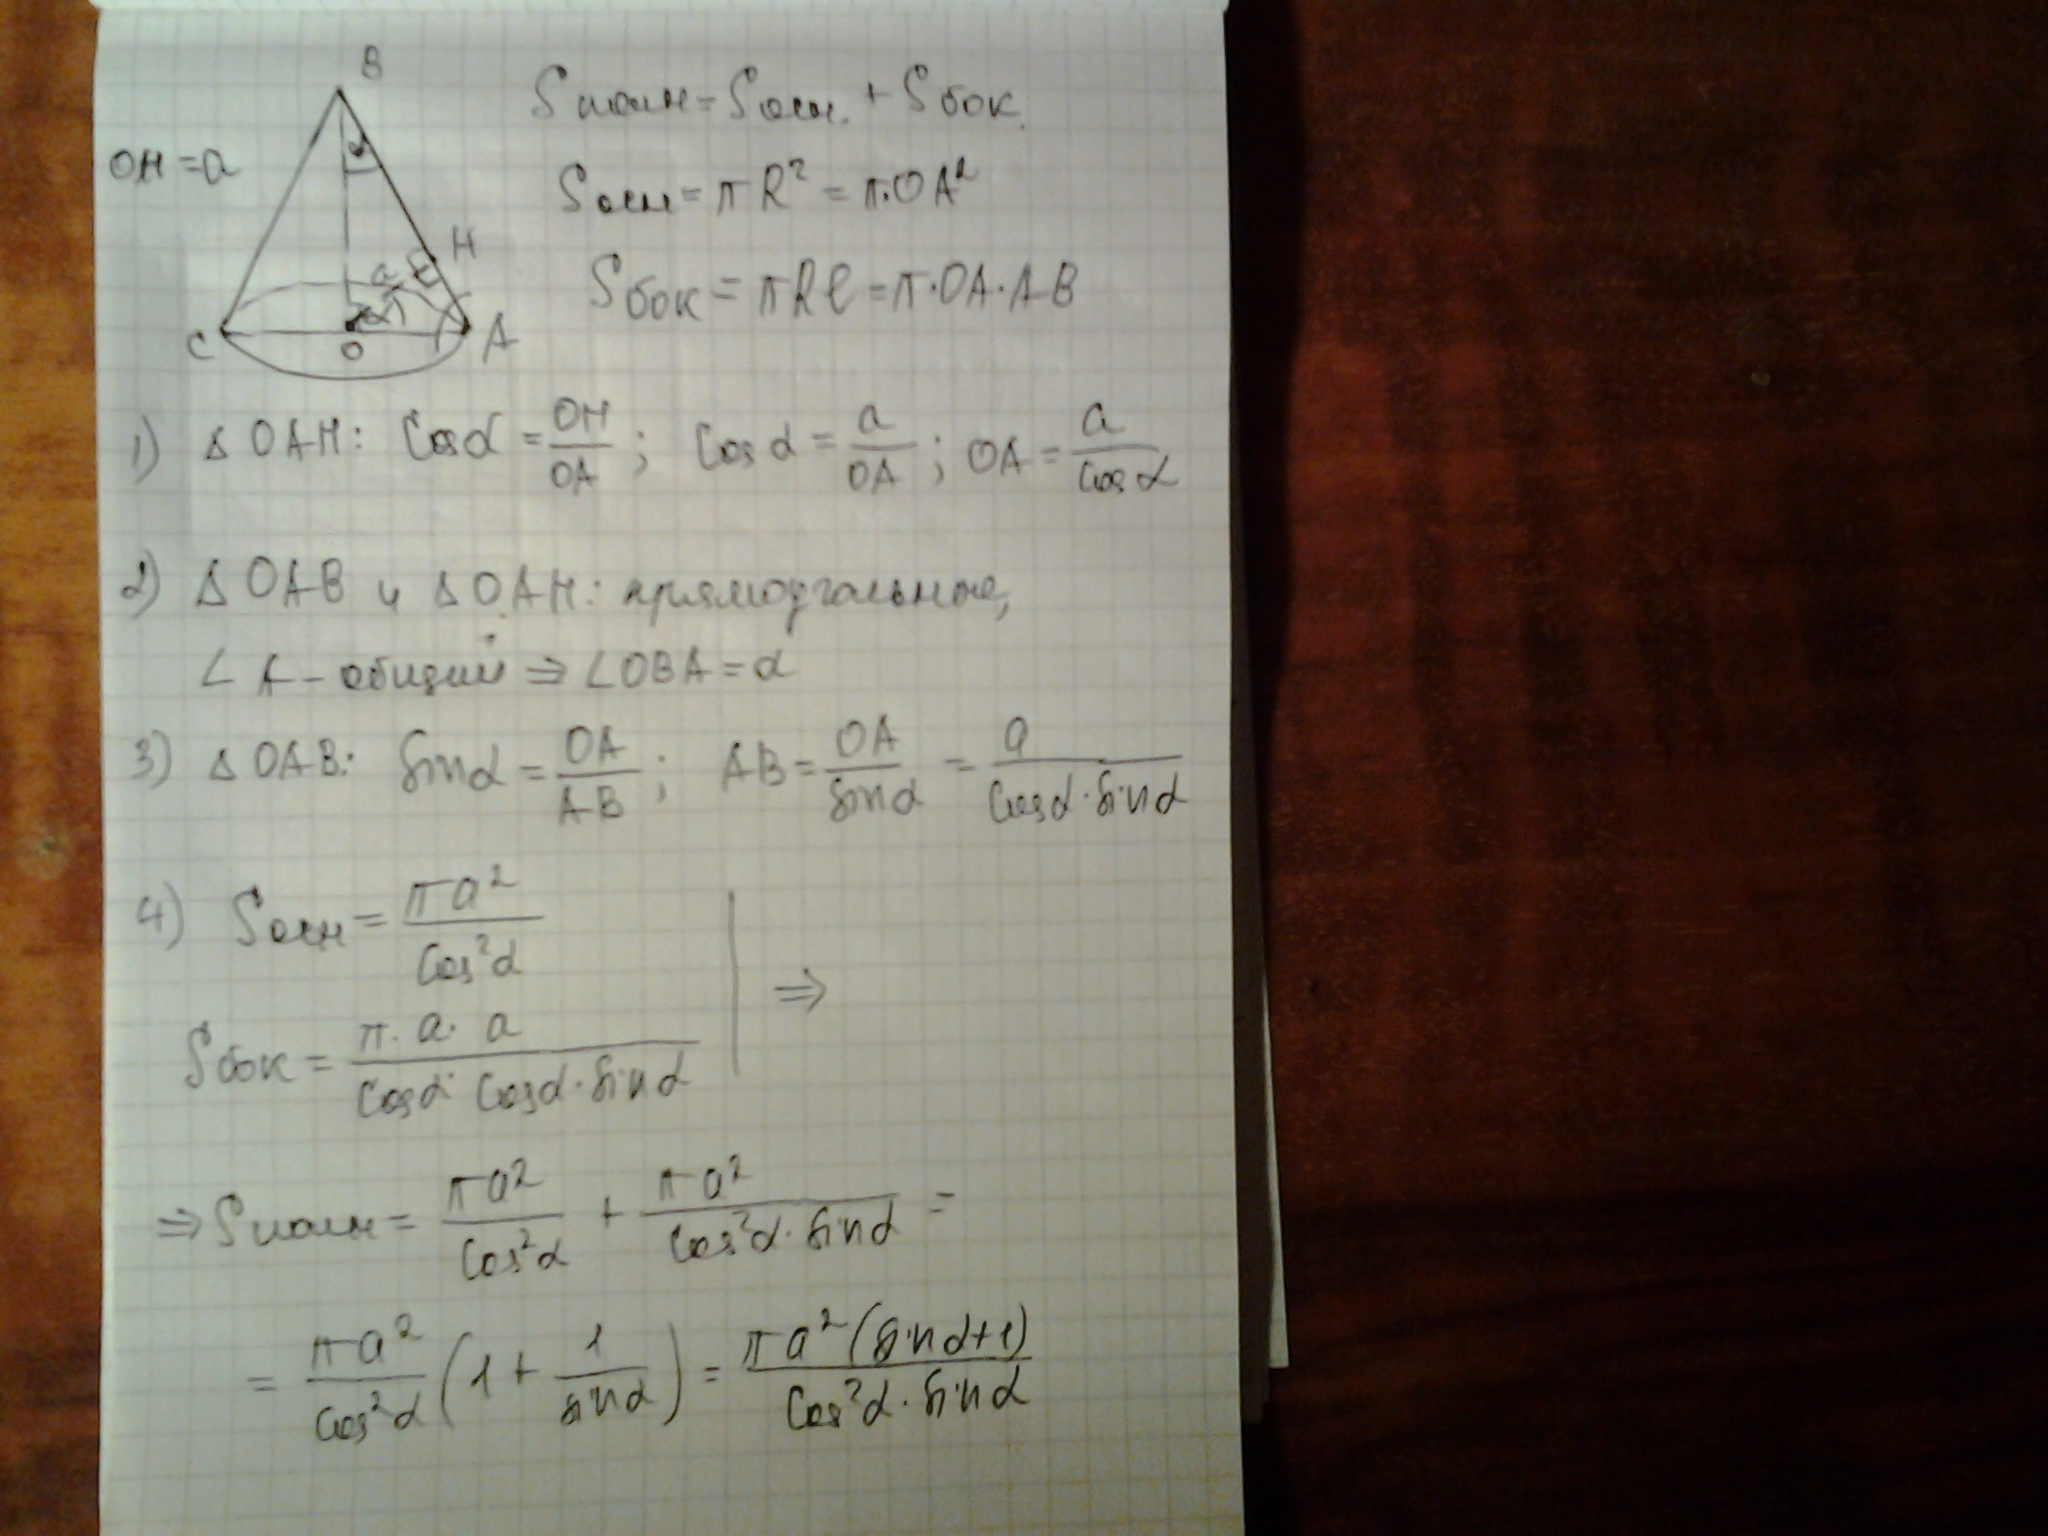 B
OH = a
α
H
a
α
C
O
A
Sполн = Sосн. + Sбок.
Sосн = πR² = π·OA²
Sбок = πRℓ = π·OA·AB
1) Δ OAH: Cosα = OH/OA; Cosα = a/OA; OA = a/Cosα
2) Δ OAB и Δ OAH: прямоугольные,
∠ A – общий ⇒ ∠OBA = α
3) Δ OAB: Sinα = OA/AB; AB = OA/Sinα = a/(Cosα·Sinα)
4) Sосн = πa²/Cos²α
⇒
Sбок = π·a·a/(Cosα·Cosα·Sinα)
⇒ Sполн = πa²/Cos²α + πa²/(Cos²α·Sinα) =
= πa²/Cos²α (1 + 1/sinα) = πa²(Sinα+1)/(Cos²α·Sinα)